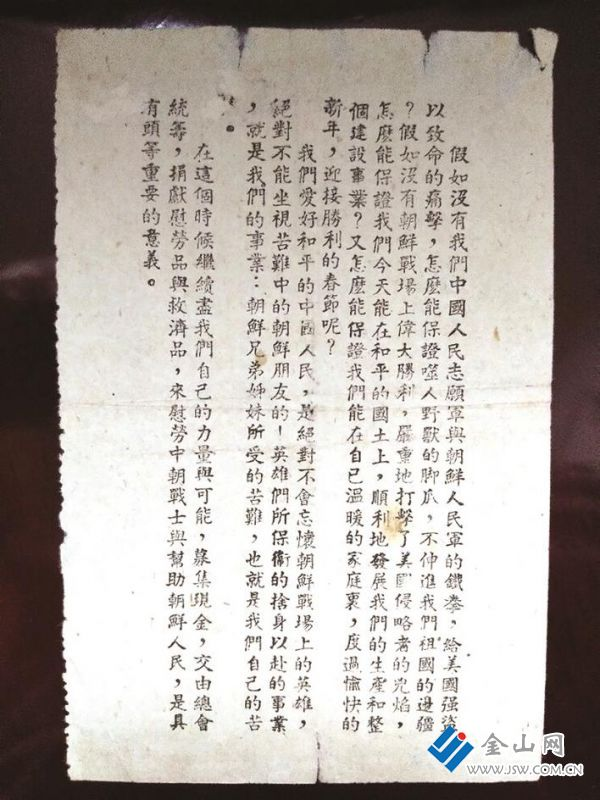 假如沒有我們中國人民志願軍與朝鮮人民軍的鐵拳,給美國强盜
以致命的痛擊,怎麽能保證噬人野獸的脚爪,不伸進我們祖國的邊疆
?假如沒有朝鮮戰場上偉大勝利,嚴重地打擊了美國侵略者的兇焰,
怎麽能保證我們今天能在和平的國土上,順利地發展我們的生產和整
個建設事業?又怎麽能保證我們能在自己温暖的家庭裏,度過愉快的
新年,迎接勝利的春節呢?
我們愛好和平的中國人民,是絕對不會忘懷朝鮮戰場上的英雄,
絕對不能坐視苦難中的朝鮮朋友的!英雄們所保衛的捨身以赴的事業
,就是我們的事業:朝鮮兄弟姊妹所受的苦難,也就是我們自己的苦
。
在這個時候繼續盡我們自己的力量與可能,募集現金,交由總會
統籌,捐獻慰勞品與救濟品,來慰勞中朝戰士與幫助朝鮮人民,是具
有頭等重要的意義。
金山网
WWW.JSW.COM.CN